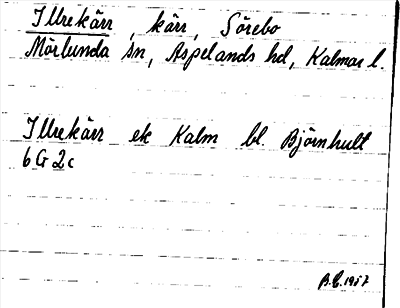 Illrekärr, kärr, Sörebo
Mörlunda sn, Aspelands hd, Kalmar l.
Illrekärr ek Kalm bl. Björnhult
6G2c
B.E. 1957